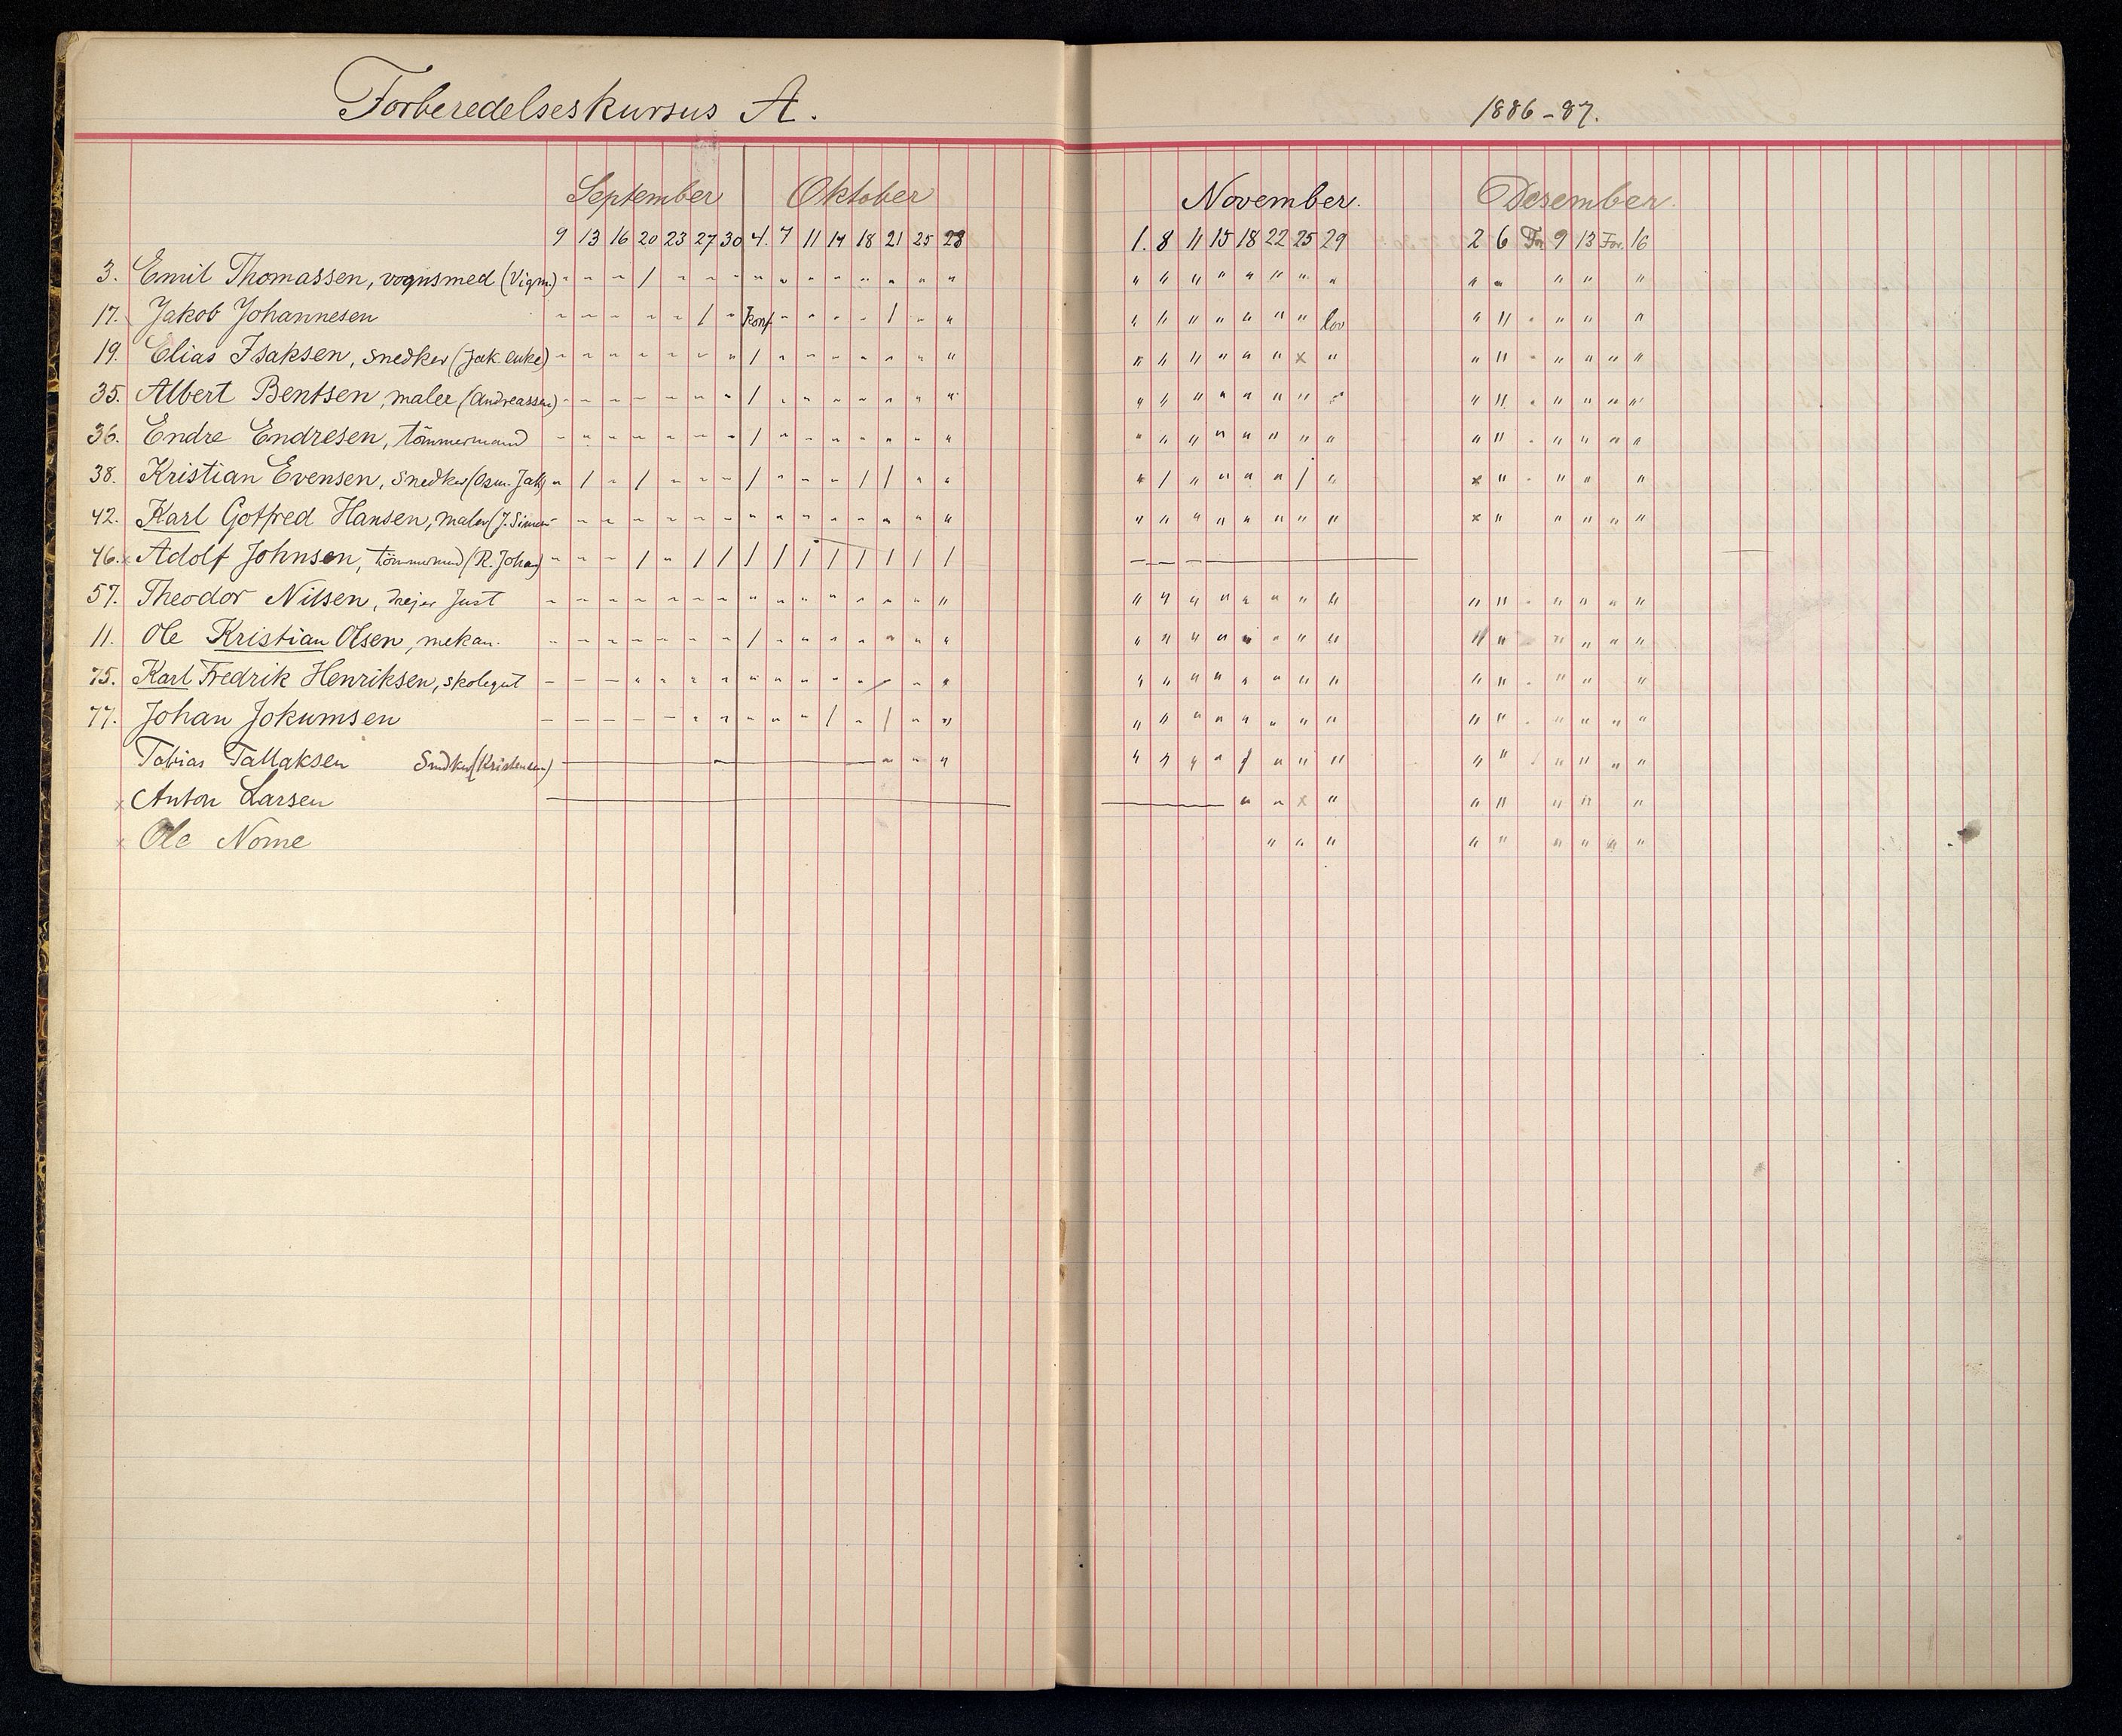 Forberedelseskursus A.
1886-87.
September Oktober November. Desember.
9 13 16 20 23 27 30 4. 7 11 14 18 21 25 28 1. 8 11 15 18 22 25 29 2 6 9 13 For. 16
3. Emil Thomassen, vognsmed (Vigm.) - - - / - - - " " " " " " " " " " " " " " " " " " " " "
17. Jakob Johannesen - - - - - / - Konf - - - - / - " " " " " " " " lov " " - " " "
19. Elias Isaksen, snedker (Jak. enke) - - - - - - " / - - - - - - " " " " " " " x " " " - " " " "
35. Albert Bentsen, maler (Andreassen) - - - - - - - / - - - - - - " " " " " " " " " " " - " " " "
36. Endre Endresen, tömmermand - - - - - - - / - - - - - - " " " " " " " " " " " - " " " "
38. Kristian Evensen, snedker (Osm. Jak) - / - / - - - / - - - / / - " " / " " " " / " x " - " " "
42. Karl Gotfred Hansen, maler (J. Simon - - - - - - - - - - - - - - " " " " " " " " " x " " " " "
46. x Adolf Johnsen, tömmermd (R. Johan) - - - / - / / / / / / / / / /
57. Theodor Nilsen, drejer Just - - - - - - - " " " " " " " " " " " " " " " " " " - " " " "
11. Ole Kristian Olsen, mekan. - - - - - - - / - - - - - - " " " " " " " " " " " " " " "
75. Karl Fredrik Henriksen, skolegut - - - " " " " " " " " " / " " " " " " " " " " " " - " " "
77. Johan Jokumsen - - - - - " " " " " / " / " " " " " " " " " " " " - " " " "
Tobias Tallaksen Snedker (Kristensen) " " " " " " " / " " " " " / " " " "
x Anton Larsen " " x " " " " " "
x Ole Nome " " " " " " " " "